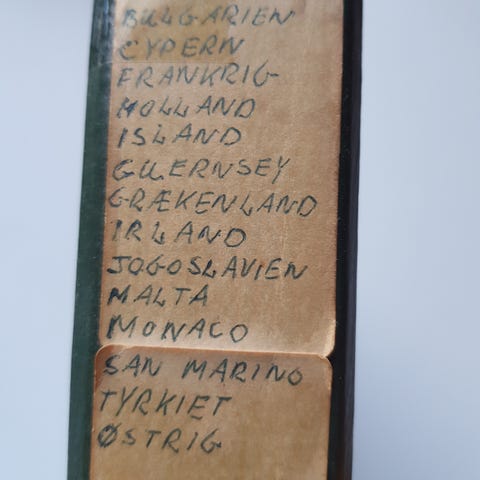 BULGARIEN
CYPERN
FRANKRIG
HOLLAND
ISLAND
GUERNSEY
GRÆKENLAND
IRLAND
JOGOSLAVIEN
MALTA
MONACO
SAN MARINO
TYRKIET
ØSTRIG